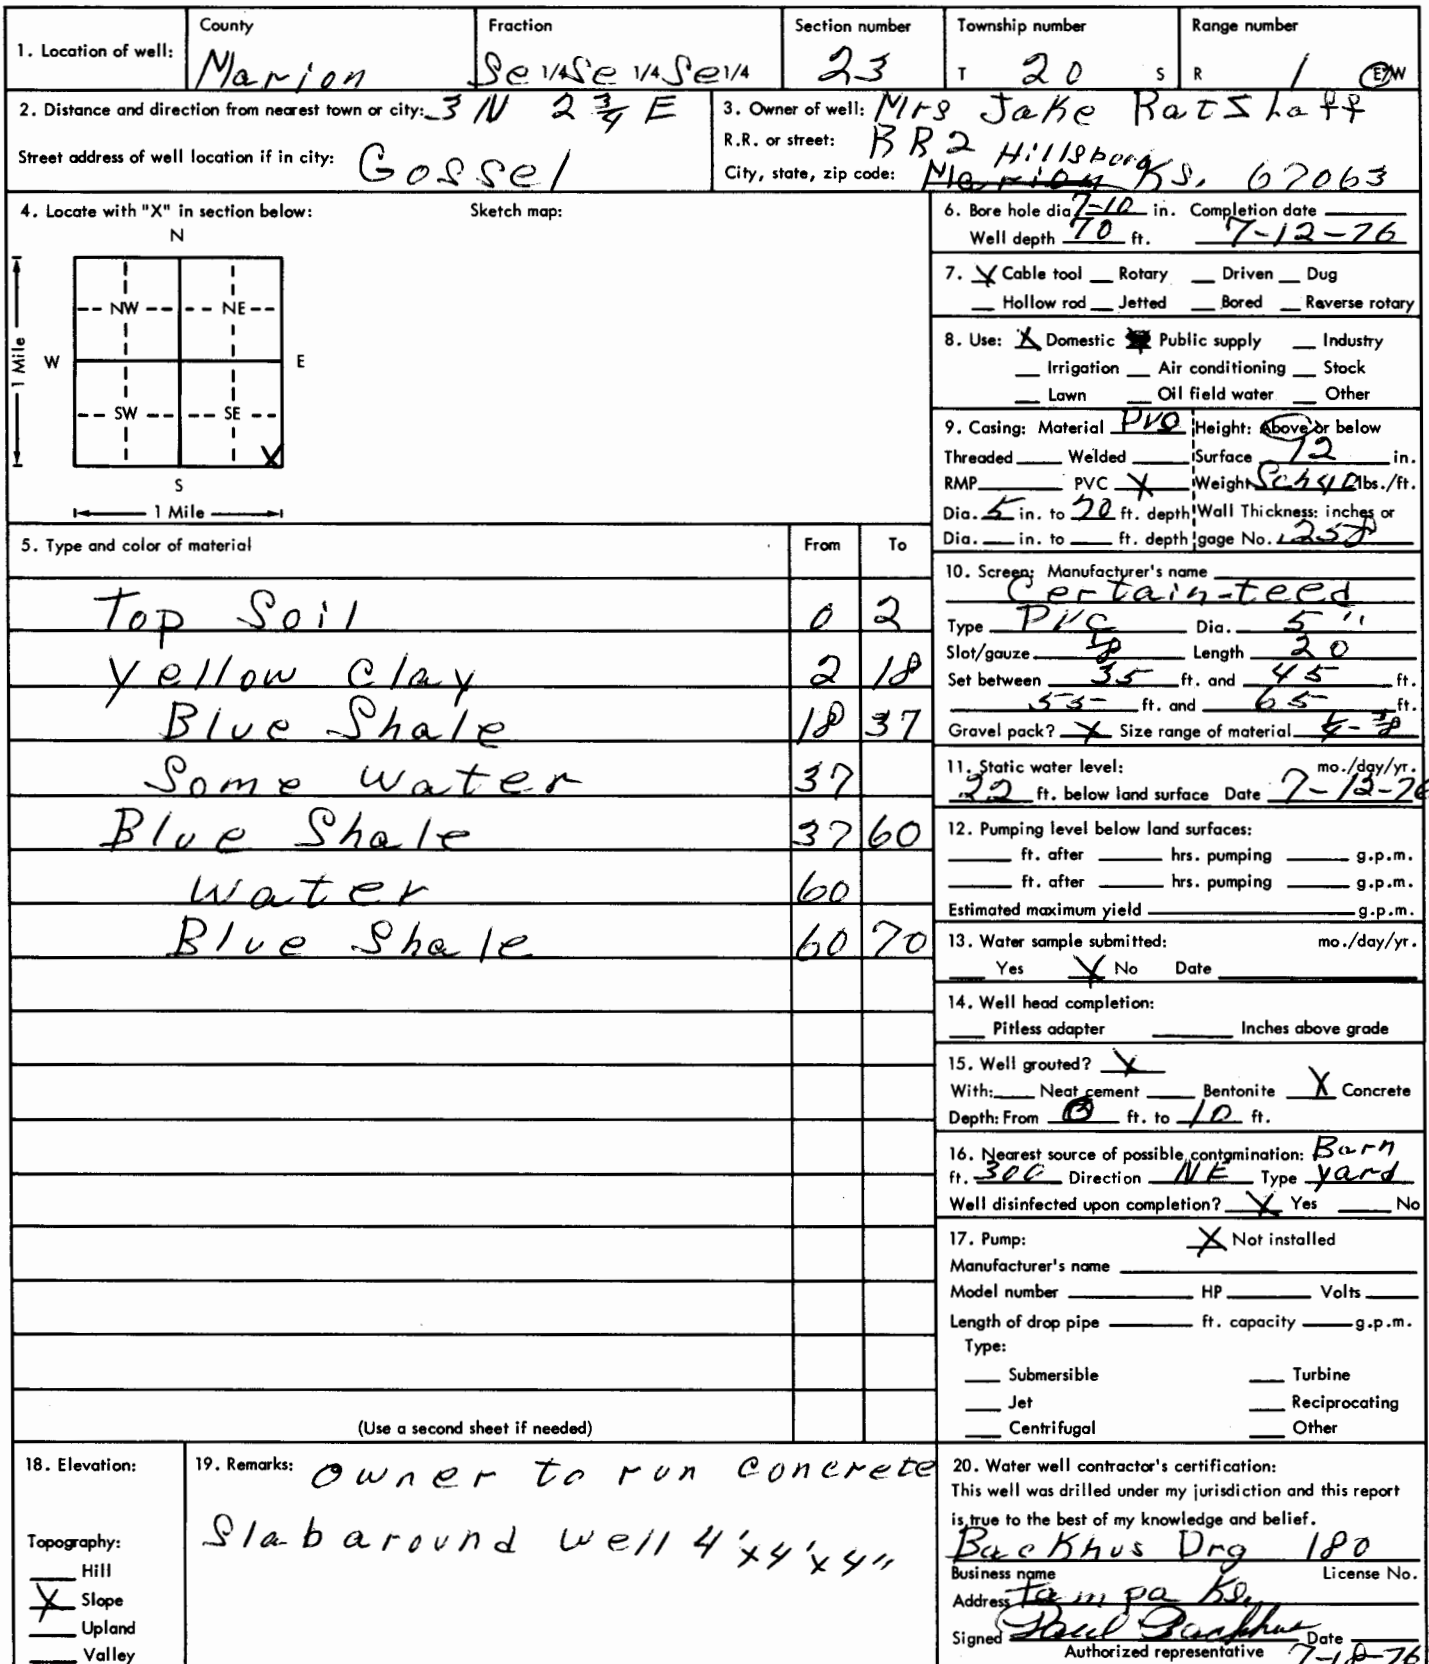 County Fraction Section number Township number Range number
1. Location of well: Marion Se 1/4 Se 1/4 Se 1/4 23 T 20 S R 1 E/W
2. Distance and direction from nearest town or city: 3 N 2 3/4 E
Street address of well location if in city: Gossel
3. Owner of well: Mrs Jake Ratzlaff
R.R. or street: RR2
City, state, zip code: Marion Hillsboro Ks. 67063
4. Locate with "X" in section below: Sketch map:
N
NW NE
W E
1 Mile
SW SE
X
S
1 Mile
5. Type and color of material From To
Top Soil 0 2
Yellow Clay 2 18
Blue Shale 18 37
Some water 37
Blue Shale 37 60
water 60
Blue Shale 60 70
(Use a second sheet if needed)
6. Bore hole dia 7-10 in. Completion date
Well depth 70 ft. 7-12-76
7. X Cable tool __ Rotary __ Driven __ Dug
__ Hollow rod __ Jetted __ Bored __ Reverse rotary
8. Use: X Domestic Public supply __ Industry
__ Irrigation __ Air conditioning __ Stock
__ Lawn __ Oil field water __ Other
9. Casing: Material PVC Height: Above or below
Threaded __ Welded __ Surface 12 in.
RMP __ PVC X Weight Sch40 lbs./ft.
Dia. 5 in. to 70 ft. depth Wall Thickness: inches or
Dia. __ in. to __ ft. depth gage No. .258
10. Screen: Manufacturer's name
Certain-teed
Type PVC Dia. 5"
Slot/gauze 1/8 Length 20
Set between 35 ft. and 45 ft.
55 ft. and 65 ft.
Gravel pack? X Size range of material 1/4-3/8
11. Static water level: mo./day/yr.
22 ft. below land surface Date 7-12-76
12. Pumping level below land surfaces:
__ ft. after __ hrs. pumping __ g.p.m.
__ ft. after __ hrs. pumping __ g.p.m.
Estimated maximum yield __ g.p.m.
13. Water sample submitted: mo./day/yr.
__ Yes X No Date
14. Well head completion:
__ Pitless adapter __ Inches above grade
15. Well grouted? X
With: __ Neat cement __ Bentonite X Concrete
Depth: From 0 ft. to 10 ft.
16. Nearest source of possible contamination: Barn
ft. 300 Direction NE Type yard
Well disinfected upon completion? X Yes __ No
17. Pump: X Not installed
Manufacturer's name
Model number __ HP __ Volts
Length of drop pipe __ ft. capacity __ g.p.m.
Type:
__ Submersible __ Turbine
__ Jet __ Reciprocating
__ Centrifugal __ Other
18. Elevation:
Topography:
__ Hill
X Slope
__ Upland
__ Valley
19. Remarks: Owner to run concrete
Slab around well 4'x4'x4"
20. Water well contractor's certification:
This well was drilled under my jurisdiction and this report
is true to the best of my knowledge and belief.
Backhus Drg 180
Business name License No.
Address Tampa Ks.
Signed Paul Backhus Date
Authorized representative 7-18-76